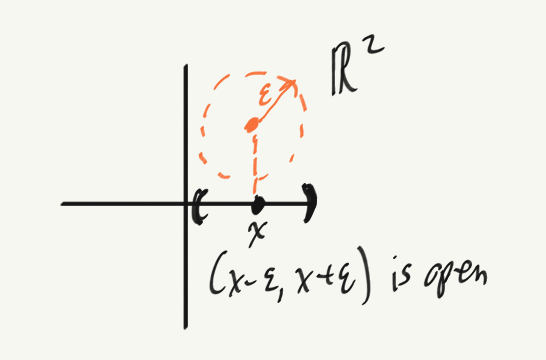 ℝ²
ε
x
(x-ε, x+ε) is open